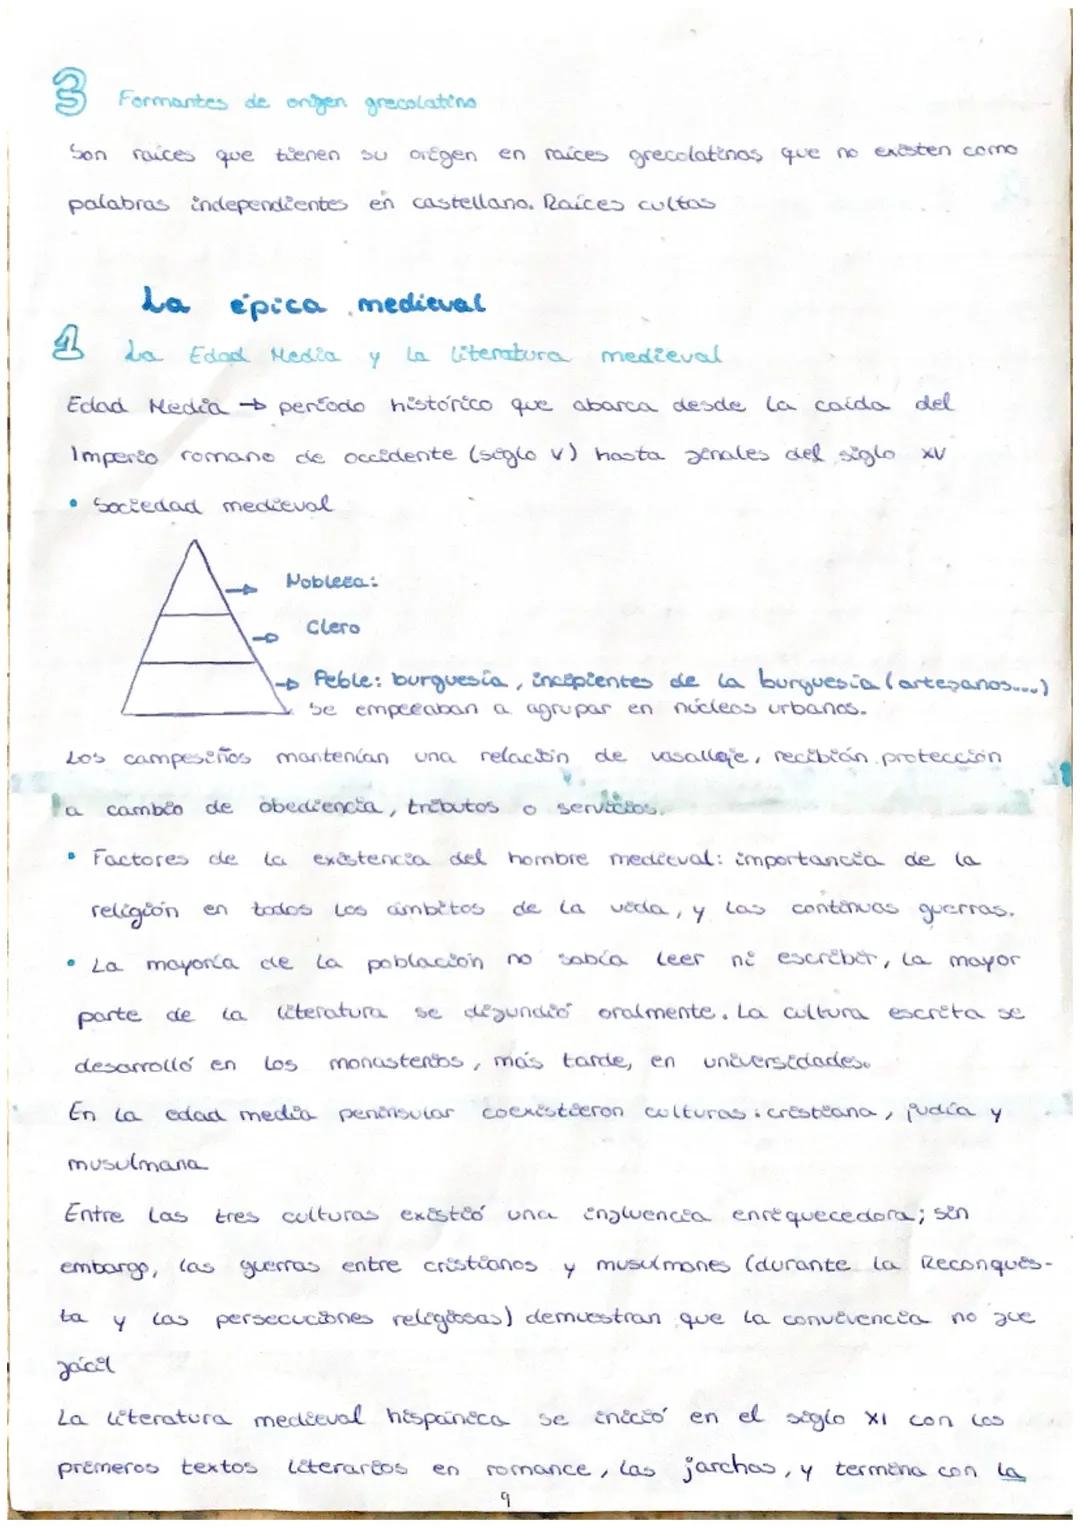 3 Formantes de origen grecolatino
Son raíces que tienen su origen en raíces grecolatinas que no existen como
palabras independientes en castellano. Raíces cultas
La épica medieval
1 La Edad Media y la literatura medieval
Edad Media → período histórico que abarca desde la caída del
Imperio romano de occidente (siglo V) hasta finales del siglo XV
• Sociedad medieval
→ Nobleza:
→ Clero
→ Peble: burguesía, incipientes de la burguesía (artesanos....)
se empezaban a agrupar en núcleos urbanos.
Los campesinos mantenían una relación de vasallaje, recibían protección
a cambio de obediencia, tributos o servicios.
• Factores de la existencia del hombre medieval: importancia de la
religión en todos los ámbitos de la vida, y las continuas guerras.
• La mayoría de la población no sabía leer ni escribir, la mayor
parte de la literatura se difundió oralmente. La cultura escrita se
desarrolló en los monasterios, más tarde, en universidades.
En la edad media peninsular coexistieron culturas: cristiana, judía y
musulmana
Entre las tres culturas existió una influencia enriquecedora; sin
embargo, las guerras entre cristianos y musulmanes (durante la Reconquis-
ta y las persecuciones religiosas) demuestran que la convivencia no fue
fácil
La literatura medieval hispánica se inició en el siglo XI con los
primeros textos literarios en romance, las jarchas, y termina con la
9